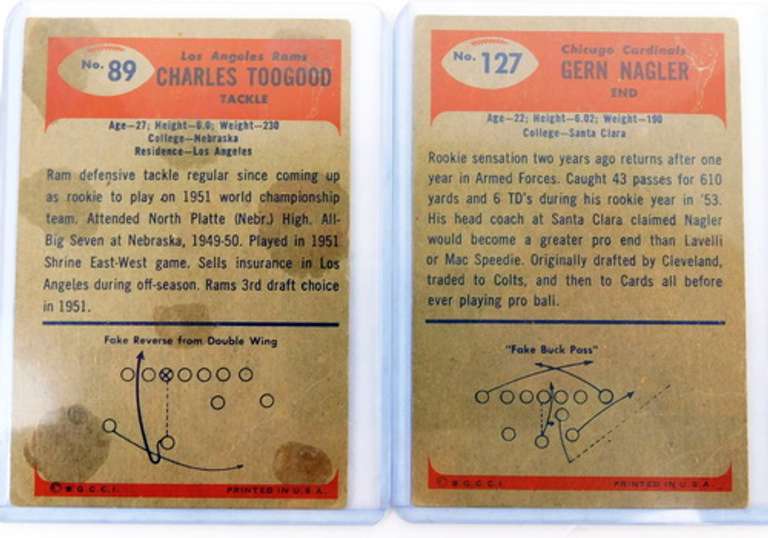 No. 89
Los Angeles Rams
CHARLES TOOGOOD
TACKLE
Age—27; Height—6.0; Weight—230
College—Nebraska
Residence—Los Angeles
Ram defensive tackle regular since coming up
as rookie to play on 1951 world championship
team. Attended North Platte (Nebr.) High. All-
Big Seven at Nebraska, 1949-50. Played in 1951
Shrine East-West game. Sells insurance in Los
Angeles during off-season. Rams 3rd draft choice
in 1951.
Fake Reverse from Double Wing
© B.G.C.C.I. PRINTED IN U.S.A.
No. 127
Chicago Cardinals
GERN NAGLER
END
Age—22; Height—6.02; Weight—190
College—Santa Clara
Rookie sensation two years ago returns after one
year in Armed Forces. Caught 43 passes for 610
yards and 6 TD's during his rookie year in '53.
His head coach at Santa Clara claimed Nagler
would become a greater pro end than Lavelli
or Mac Speedie. Originally drafted by Cleveland,
traded to Colts, and then to Cards all before
ever playing pro ball.
"Fake Buck Pass"
© B.G.C.C.I. PRINTED IN U.S.A.